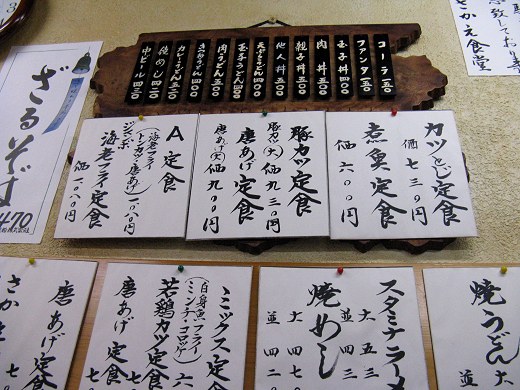 コーラ 一五〇
ファンタ 一五〇
玉子丼 四〇〇
肉丼 五〇〇
親子丼 五〇〇
他人丼 五〇〇
玉子うどん 四〇〇
肉うどん 五〇〇
きつねうどん 四〇〇
カレーうどん 五二〇
焼めし 四二〇
中ビール 四五〇
さかえ食堂
ざるそば
470
カツとじ定食
価 七三〇円
煮魚定食
価 六〇〇円
豚カツ定食
豚カツ(大) 価 九三〇円
唐あげ定食
唐あげ(大) 価 九〇〇円
A定食
(海老フライ
トンカツ・唐あげ)
一〇八〇円
ジャンボ
海老フライ定食
価 一〇八〇円
スタミナラーメ
大 五三
並 四三
焼めし
大 四七
並 四二
焼うどん
大
並
ミックス定食
(白身魚フライ
ミンチ・コロッケ)
若鶏カツ定食
唐あげ定食
唐あげ定食